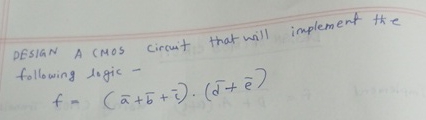 DESIGN A CMOS Circuit that will implement the
following logic -
f = (a̅ + b̅ + c̅) . (d̅ + e̅)